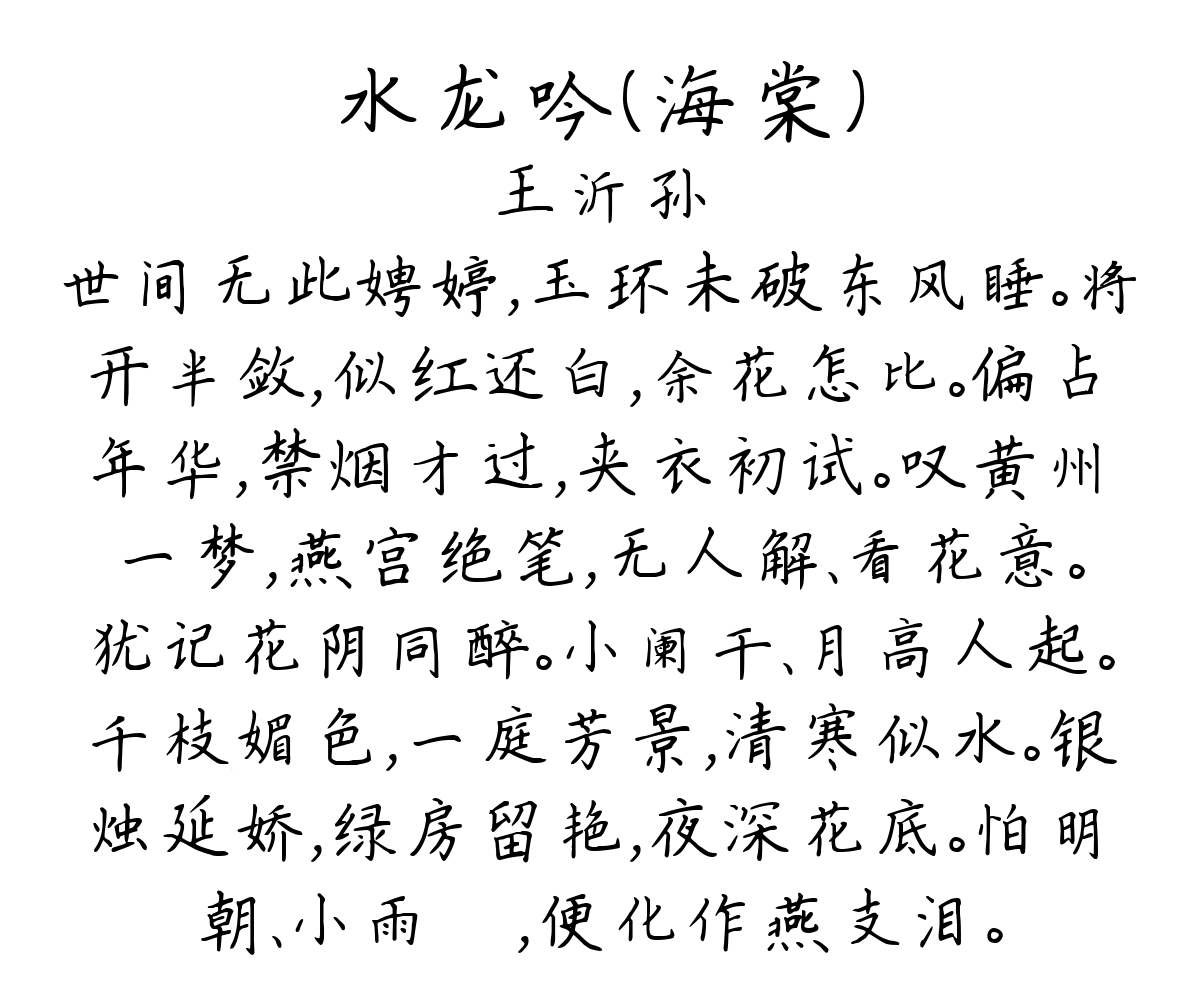 水龙吟(海棠)
王沂孙
世间无此娉婷,玉环未破东风睡。将
开半敛,似红还白,余花怎比。偏占
年华,禁烟才过,夹衣初试。叹黄州
一梦,燕宫绝笔,无人解、看花意。
犹记花阴同醉。小阑干、月高人起。
千枝媚色,一庭芳景,清寒似水。银
烛延娇,绿房留艳,夜深花底。怕明
朝、小雨 ,便化作燕支泪。